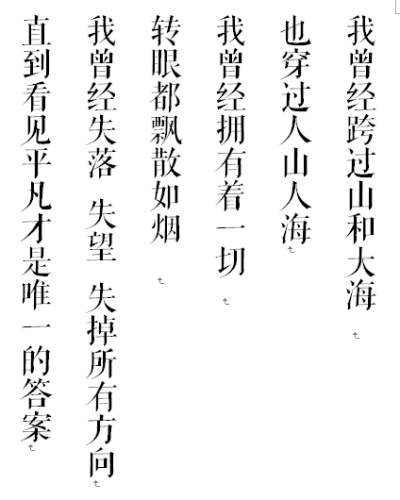 我曾经跨过山和大海
也穿过人山人海
我曾经拥有着一切
转眼都飘散如烟
我曾经失落 失望 失掉所有方向
直到看见平凡才是唯一的答案